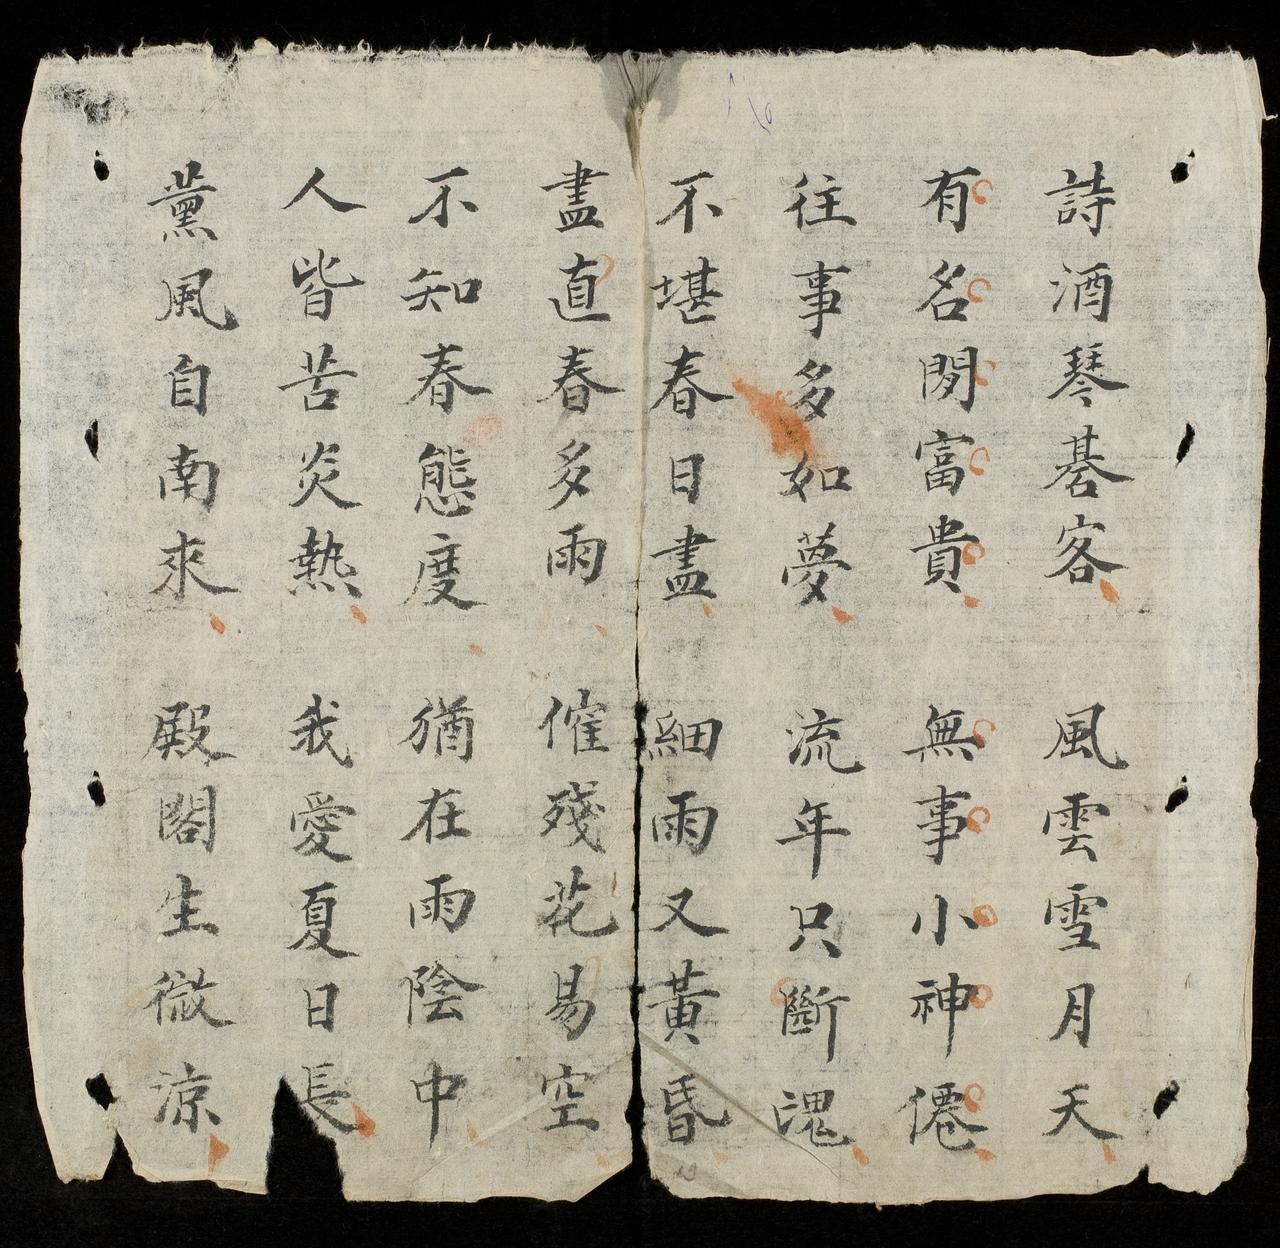 詩酒琴碁客　風雲雪月天
有名閒富貴　無事小神僊
往事多如夢　流年只斷魂
不堪春日盡　細雨又黃昏
盡直春多雨　催殘花易空
不知春態度　猶在雨陰中
人皆苦炎熱　我愛夏日長
薰風自南來　殿閣生微涼